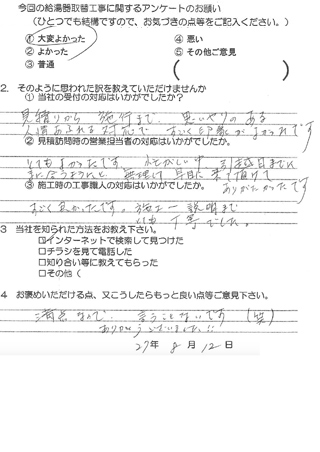 今回の給湯器取替工事に関するアンケートのお願い
(ひとつでも結構ですので、お気づきの点等をご記入ください。)
① 大変よかった ④ 悪い
② よかった ⑤ その他ご意見
③ 普通 ( )
2. そのように思われた訳を教えていただけませんか
① 当社の受付の対応はいかがでしたか?
見積りから 施行まで 思いやりのある
人情あふれる対応で すごく印象がよかったです
② 見積訪問時の営業担当者の対応はいかがでしたか。
とてもよかったです。 忙しい中、引越日までに
間に合うようにと 無理け 早目に来て頂けて
③ 施工時の工事職人の対応はいかがでしたか。 ありがたかったです
すごく良かったです。 施工、説明まで
とても丁寧でした。
3 当社を知られた方法をお教え下さい。
☑インターネットで検索して見つけた
□チラシを見て電話した
□知り合い等に教えてもらった
□その他 (
4 お褒めいただける点、又こうしたらもっと良い点等ご意見下さい。
満点なので、 言うことないです (笑)
ありがとうございました!!
27年 8 月 12 日